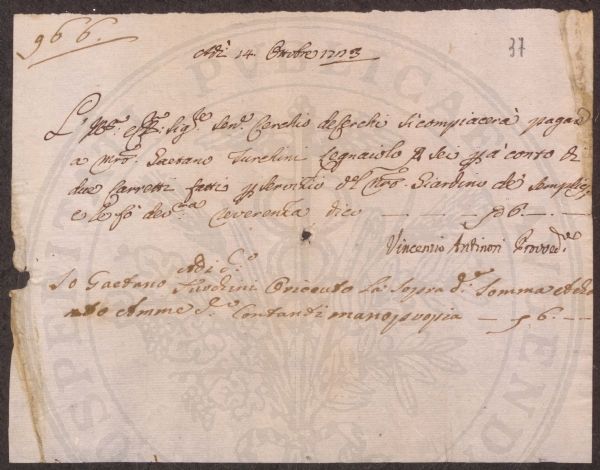 966.
37
Adì 14 Ottobre 1773
L' Sig.re Sen.re Cerchio de Cerchi si compiacerà pagare
a Mro. Gaetano Turchini Legnaiolo sei p a conto di
due Carretti fatti p servizio del Giardino de Semplici
e le fo dev.ma reverenza dico — — 6. —
Vincenzio Antinori Provved.re
Adì d.o
Io Gaetano Turchini o riceuto la sopra d.a Somma
Contanti mano propia — 6. —
PVBLICA